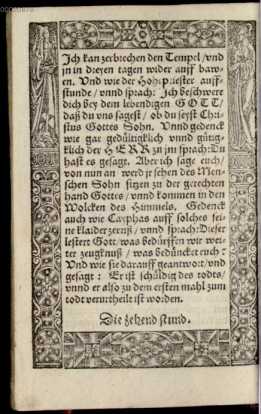 Jch kan zerbrechen den Tempel/vnd
jn in dreyen tagen wider auff baw-
en. Vnd wie der Hohpriester auff-
stunde / vnnd sprach: Jch beschwere
dich bey dem lebendigen GOTT/
daß du vns sagest / ob du seyst Chri-
stus Gottes Sohn. Vnnd gedenck
wie gar gedültigklich vnnd gütig-
klich der HERR zu jm sprach: Du
hast es gesagt. Aber ich sage euch/
von nun an werd jr sehen des Men-
schen Sohn sitzen zu der gerechten
hand Gottes / vnnd kommen in den
Wolcken des Himmels. Gedenck
auch wie Cayphas auff solches sei-
ne klaider zerriß / vnnd sprach: Dieser
lestert Gott/ was bedürffen wir wei-
ter zeugknuß / was bedüncket euch?
Vnd wie sie darauff geantwort/vnd
gesagt: Er ist schuldig des todes/
vnnd er also zu dem ersten mahl zum
todt verurtheilt ist worden.
Die zehend stund.